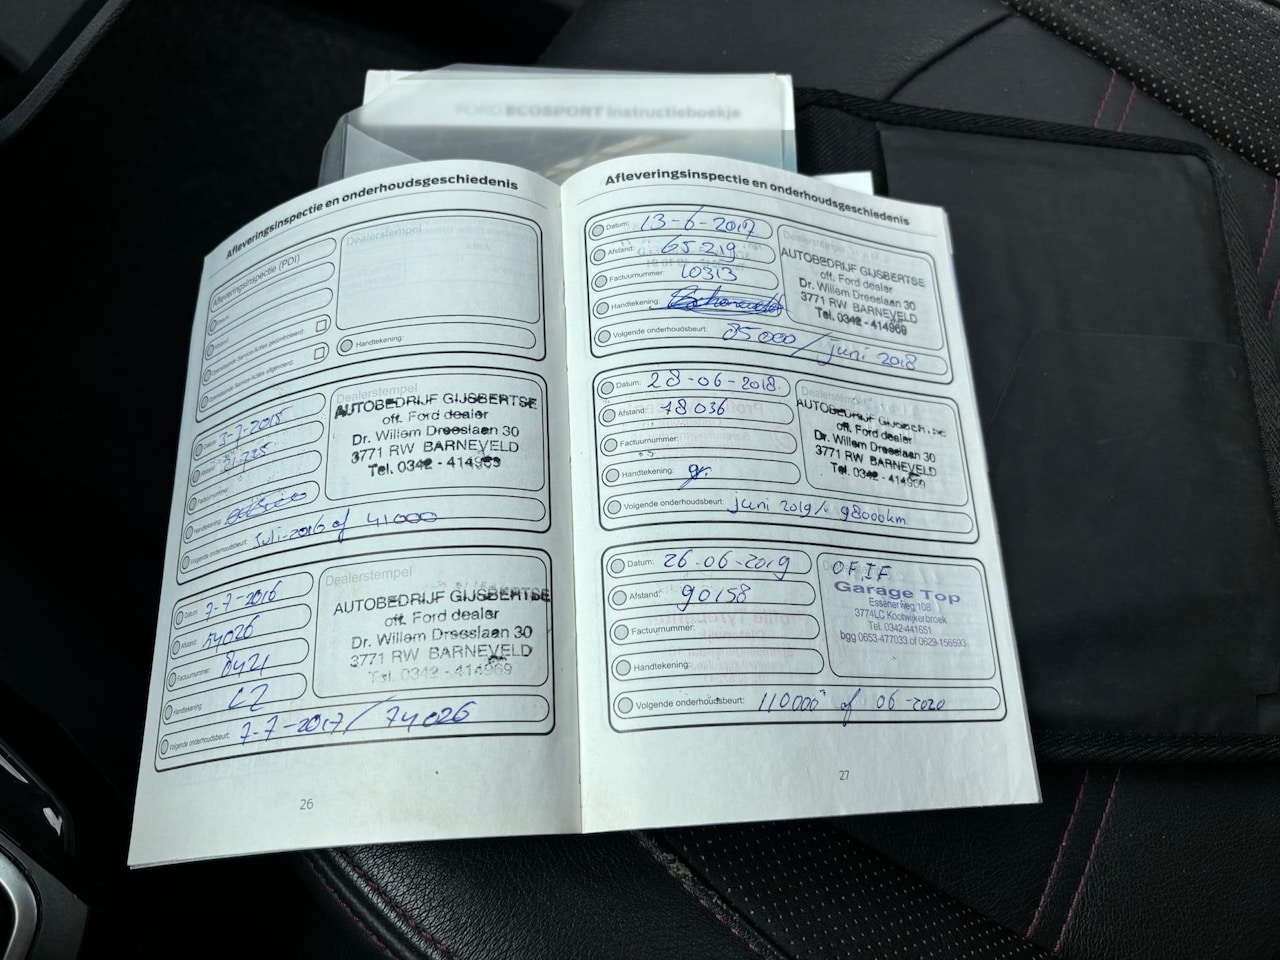 FORD ECOSPORT Instructieboekje
Afleveringsinspectie en onderhoudsgeschiedenis
Afleveringsinspectie (PDI)
Dealerstempel
Handtekening:
3-7-2015
Factuurnummer:
Handtekening:
Volgende onderhoudsbeurt: Juli-2016 of 41000
Dealerstempel
AUTOBEDRIJF GIJSBERTSE
off. Ford dealer
Dr. Willem Dreeslaan 30
3771 RW BARNEVELD
Tel. 0342 - 414969
Datum: 7-7-2016
Afstand: 54026
Factuurnummer: 8421
Handtekening:
Volgende onderhoudsbeurt: 7-7-2017 / 74026
Dealerstempel
AUTOBEDRIJF GIJSBERTSE
off. Ford dealer
Dr. Willem Dreeslaan 30
3771 RW BARNEVELD
Tel. 0342 - 414969
26
Afleveringsinspectie en onderhoudsgeschiedenis
Datum: 13-6-2017
Afstand: 65219
Factuurnummer: 10313
Handtekening:
Volgende onderhoudsbeurt: 85000 / juni 2018
Dealerstempel
AUTOBEDRIJF GIJSBERTSE
off. Ford dealer
Dr. Willem Dreeslaan 30
3771 RW BARNEVELD
Tel. 0342 - 414969
Datum: 28-06-2018
Afstand: 78036
Factuurnummer:
Handtekening:
Volgende onderhoudsbeurt: juni 2019 / 98000km
Dealerstempel
AUTOBEDRIJF GIJSBERTSE
off. Ford dealer
Dr. Willem Dreeslaan 30
3771 RW BARNEVELD
Tel. 0342 - 414969
Datum: 26-06-2019
Afstand: 90158
Factuurnummer:
Handtekening:
Volgende onderhoudsbeurt: 110000 of 06-2020
Garage Top
Essenerweg 108
3774LC Kootwijkerbroek
Tel. 0342-441651
bgg 0653-477033 of 0629-156593
27